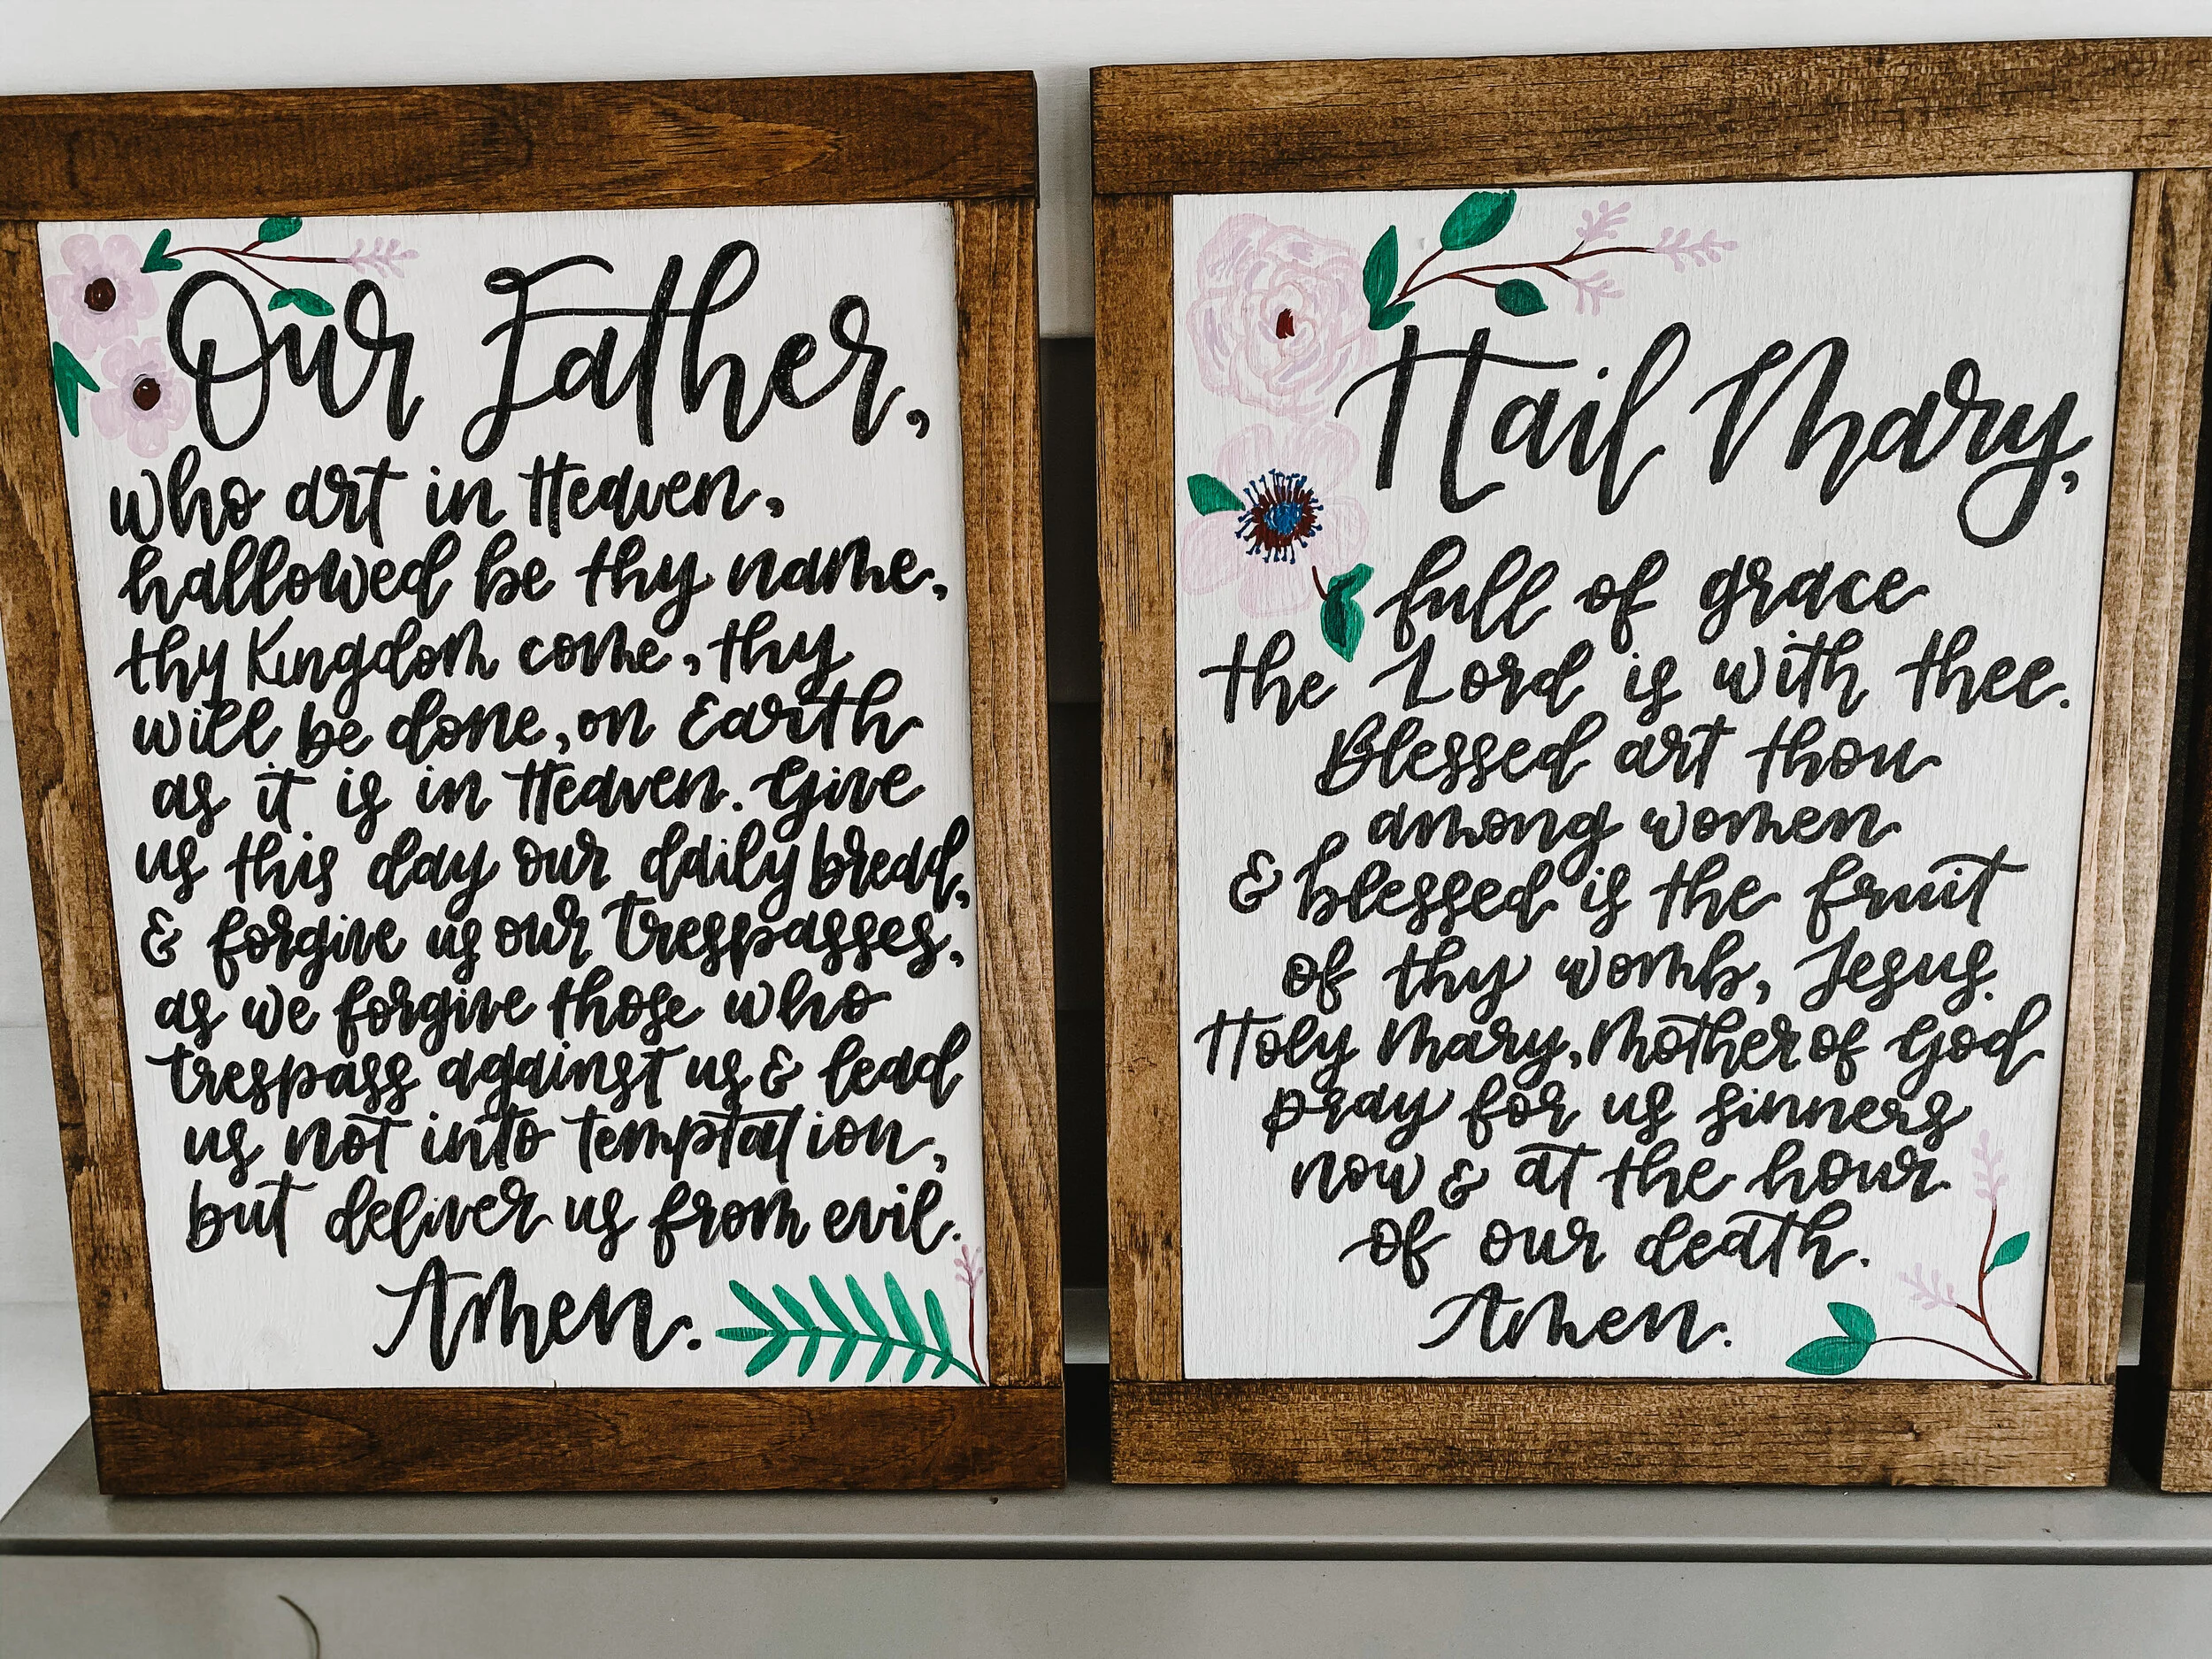 Our Father,
who art in Heaven,
hallowed be thy name,
thy Kingdom come, thy
will be done, on Earth
as it is in Heaven. Give
us this day our daily bread,
& forgive us our trespasses,
as we forgive those who
trespass against us & lead
us not into temptation,
but deliver us from evil.
Amen.
Hail Mary,
full of grace
the Lord is with thee.
Blessed art thou
among women
& blessed is the fruit
of thy womb, Jesus.
Holy Mary, Mother of God
pray for us sinners
now & at the hour
of our death.
Amen.